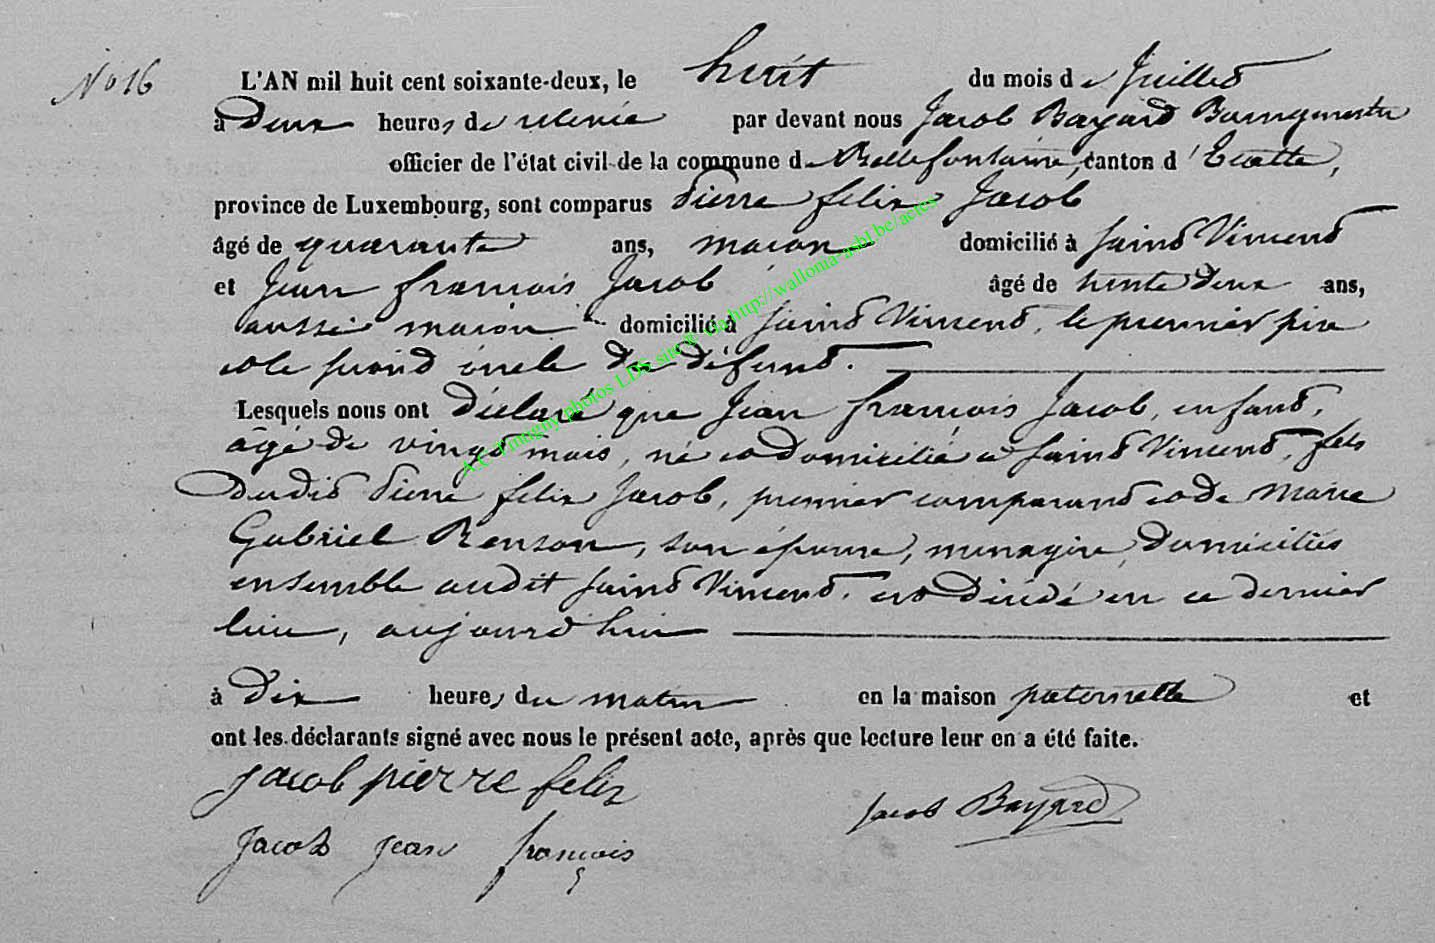 No 16
L'AN mil huit cent soixante-deux, le huit du mois de Juillet
à Deux heures de relevée par devant nous Jacob Bayard Bourgmestre
officier de l'état civil de la commune de Bellefontaine, canton d'Etalle,
province de Luxembourg, sont comparus Pierre felix Jacob
âgé de quarante ans, maçon domicilié à Saint Vincent
et Jean françois Jacob âgé de trente deux ans,
aussi maçon domicilié à Saint Vincent, le premier père
et le second oncle du défunt.
Lesquels nous ont déclaré que Jean françois Jacob, enfant,
âgé de vingt mois, né et domicilié à Saint Vincent, fils
dudit Pierre felix Jacob, premier comparant et de Marie
Gabriel Renson, son épouse, ménagère, domiciliés
ensemble audit Saint Vincent. est décédé en ce dernier
lieu, aujourd'hui
à Dix heures du matin en la maison paternelle et
ont les déclarants signé avec nous le présent acte, après que lecture leur en a été faite.
Jacob pierre felix
Jacob Bayard
Jacob jean françois
A.C. Tintigny photos LDS site & via http://wallonia-asbl.be/actes